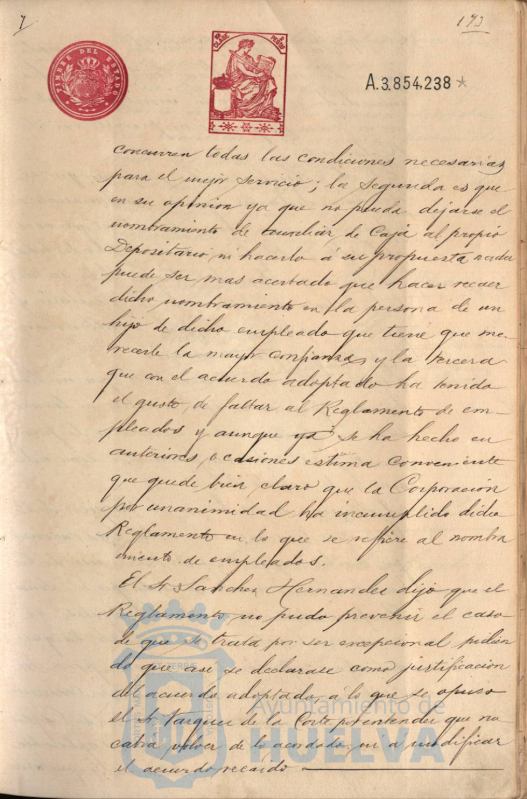 193
TIMBRE DEL ESTADO
A.3.854.238
concurren todas las condiciones necesarias
para el mejor servicio; la segunda es que
en su opinion ya que no pueda dejarse el
nombramiento de auxiliar de Caja al propio
Depositario, ni hacerlo á su propuesta nada
puede ser mas acertado que hacer recaer
dicho nombramiento en la persona de un
hijo de dicho empleado que tiene que me-
recerle la mayor confianza, y la tercera
que con el acuerdo adoptado ha tenido
el gusto de faltar al Reglamento de em-
pleados y aunque ya se ha hecho en
anteriores ocasiones estima conveniente
que quede bien claro que la Corporación
por unanimidad ha incumplido dicho
Reglamento en lo que se refiere al nombra
miento de empleados.
El Sr Sanchez Hernandez dijo que el
Reglamento no pudo prevenir el caso
de que se trata por ser excepcional pidien
do que asi se declarase como justificacion
del acuerdo adoptado, a lo que se opuso
el Sr Vazquez de la Corte por entender que no
cabia volver de lo acordado, ni a modificar
el acuerdo recaido
Ayuntamiento de
HUELVA